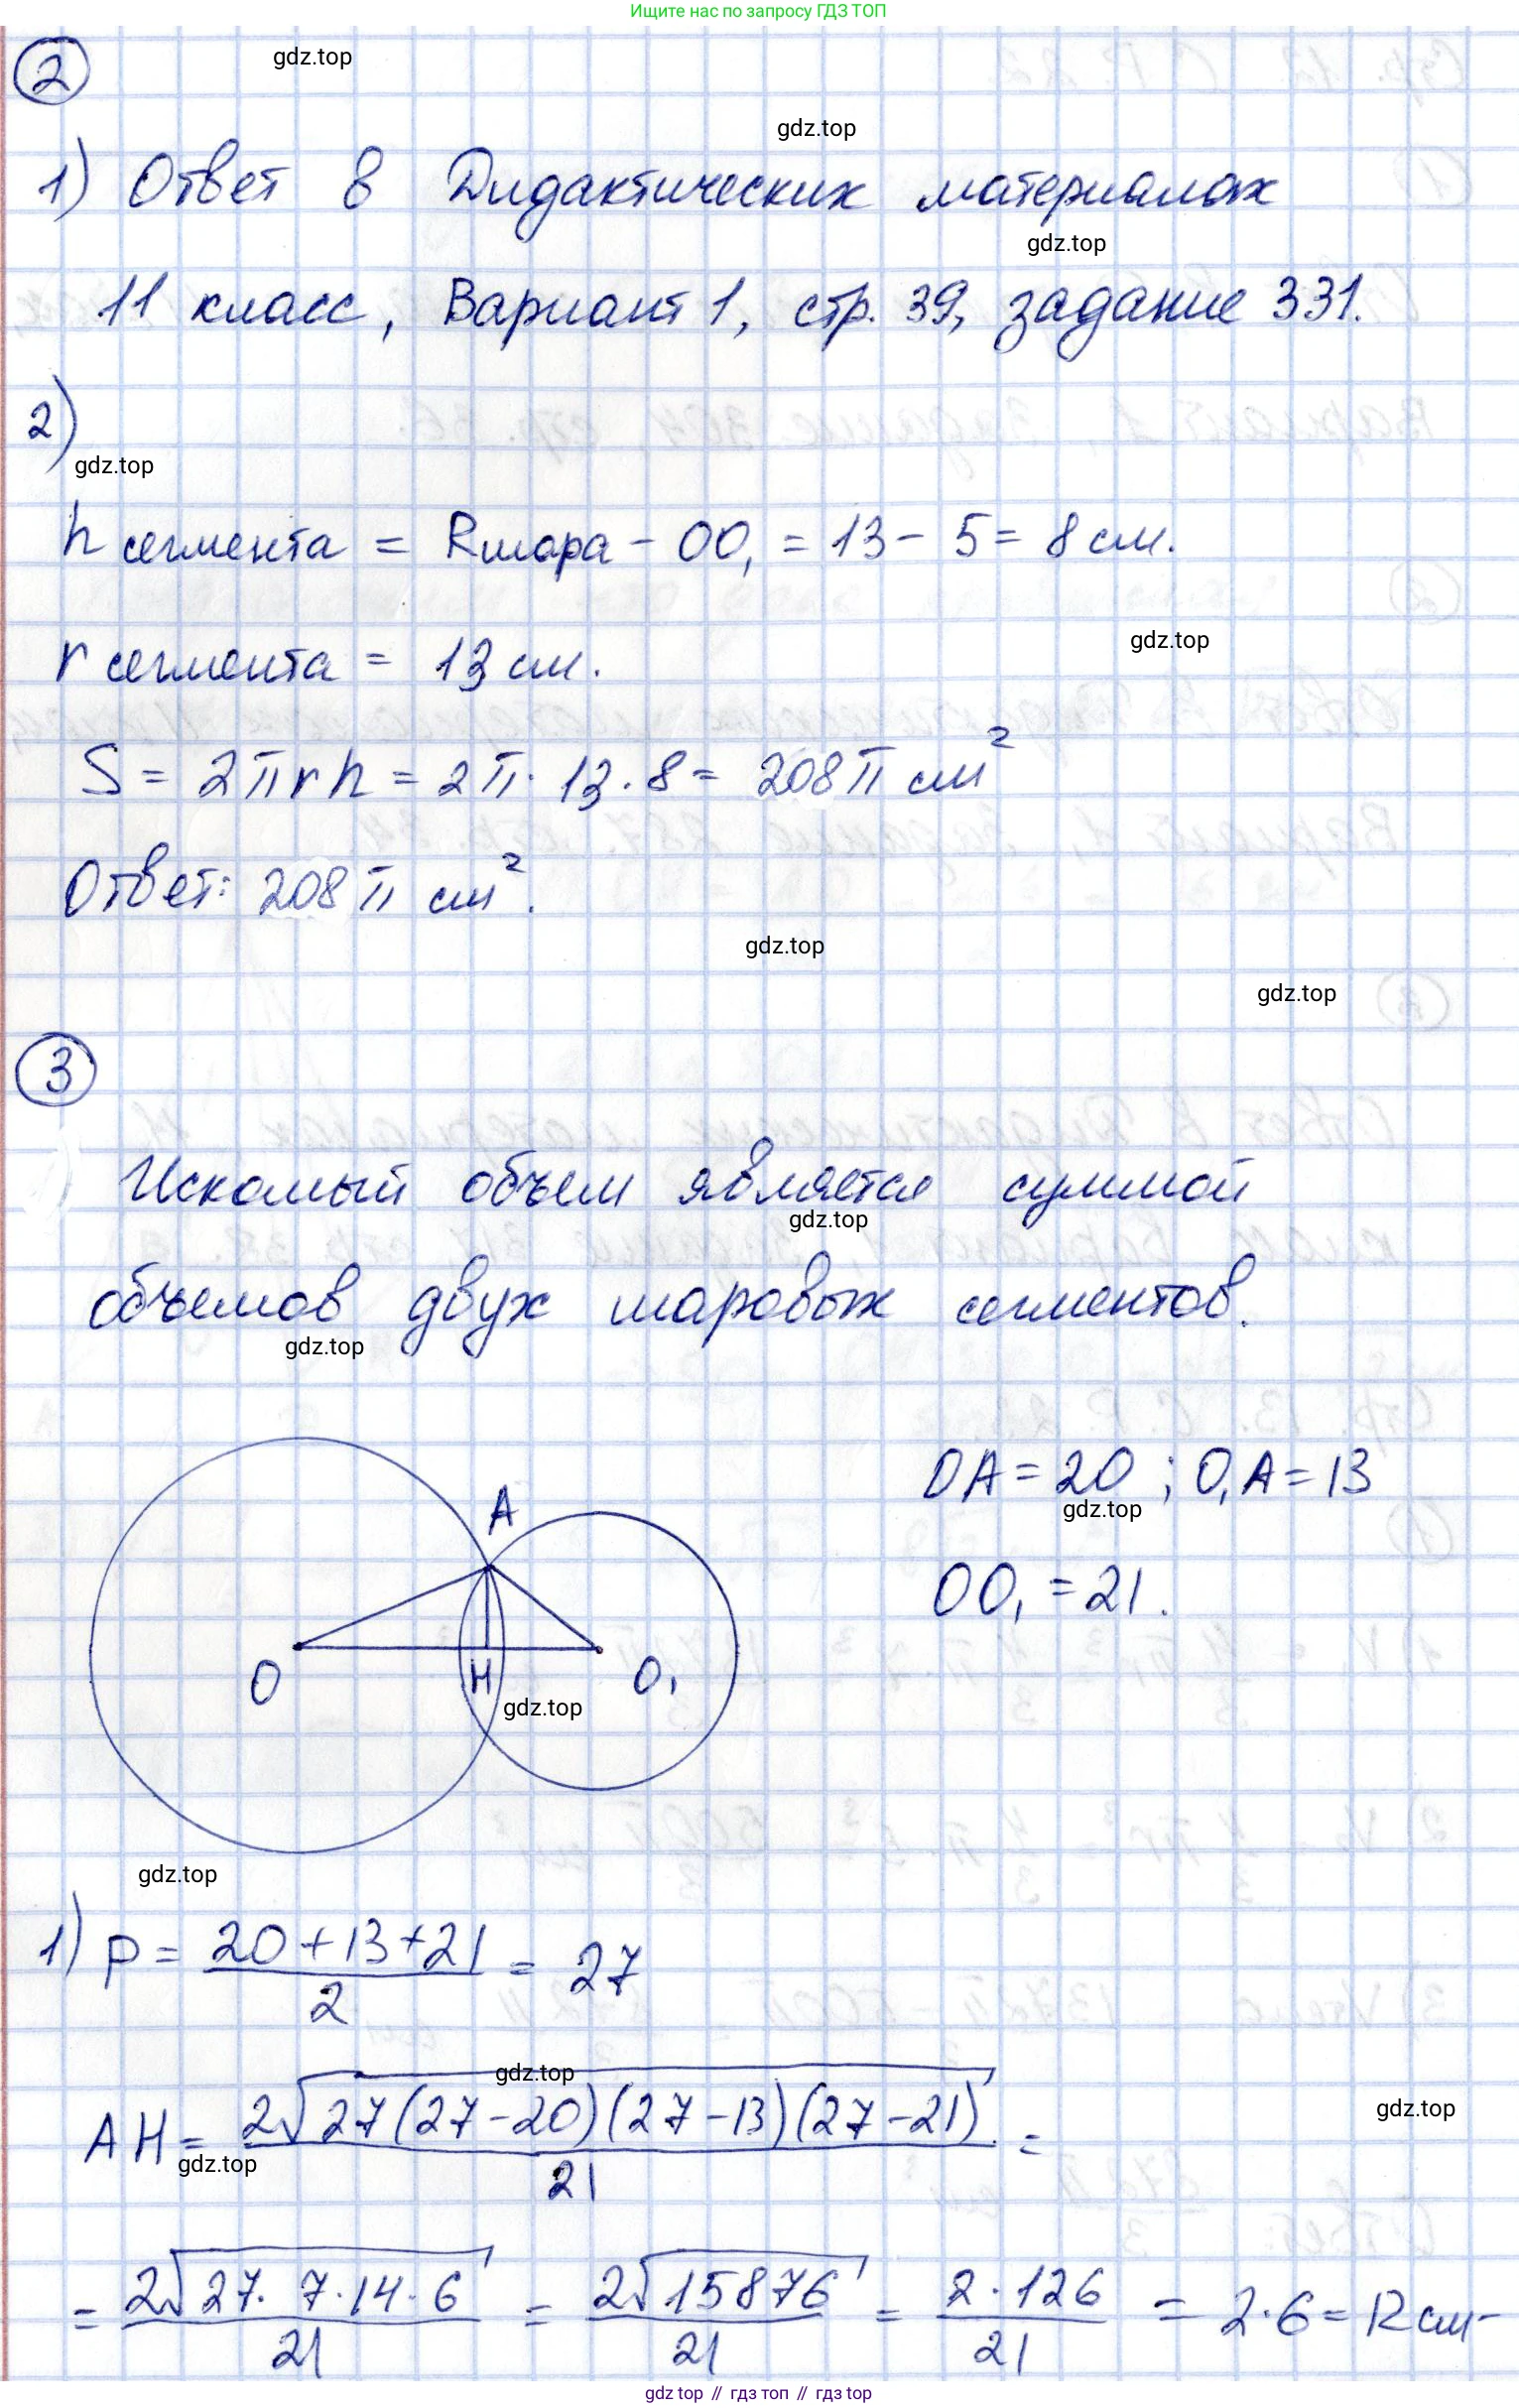 Ищите нас по запросу ГДЗ ТОП
2
gdz.top
gdz.top
1) Ответ в Дидактических материалах
gdz.top
11 класс, Вариант 1, стр. 39, задание 331.
2)
gdz.top
h сегмента = Rшара - OO₁ = 13 - 5 = 8 см.
gdz.top
r сегмента = 13 см.
S = 2πrh = 2π · 13 · 8 = 208π см²
Ответ: 208π см².
gdz.top
gdz.top
3
Искомый объем является суммой
gdz.top
объемов двух шаровых сегментов.
gdz.top
OA = 20 ; O₁A = 13
gdz.top
A
OO₁ = 21.
O
H
O₁
gdz.top
gdz.top
1) p = (20+13+21)/2 = 27
gdz.top
AH = 2√(27(27-20)(27-13)(27-21))/21 =
gdz.top
gdz.top
= 2√(27·7·14·6)/21 = 2√15876/21 = 2·126/21 = 2·6 = 12 см-
gdz.top // гдз топ // gdz top